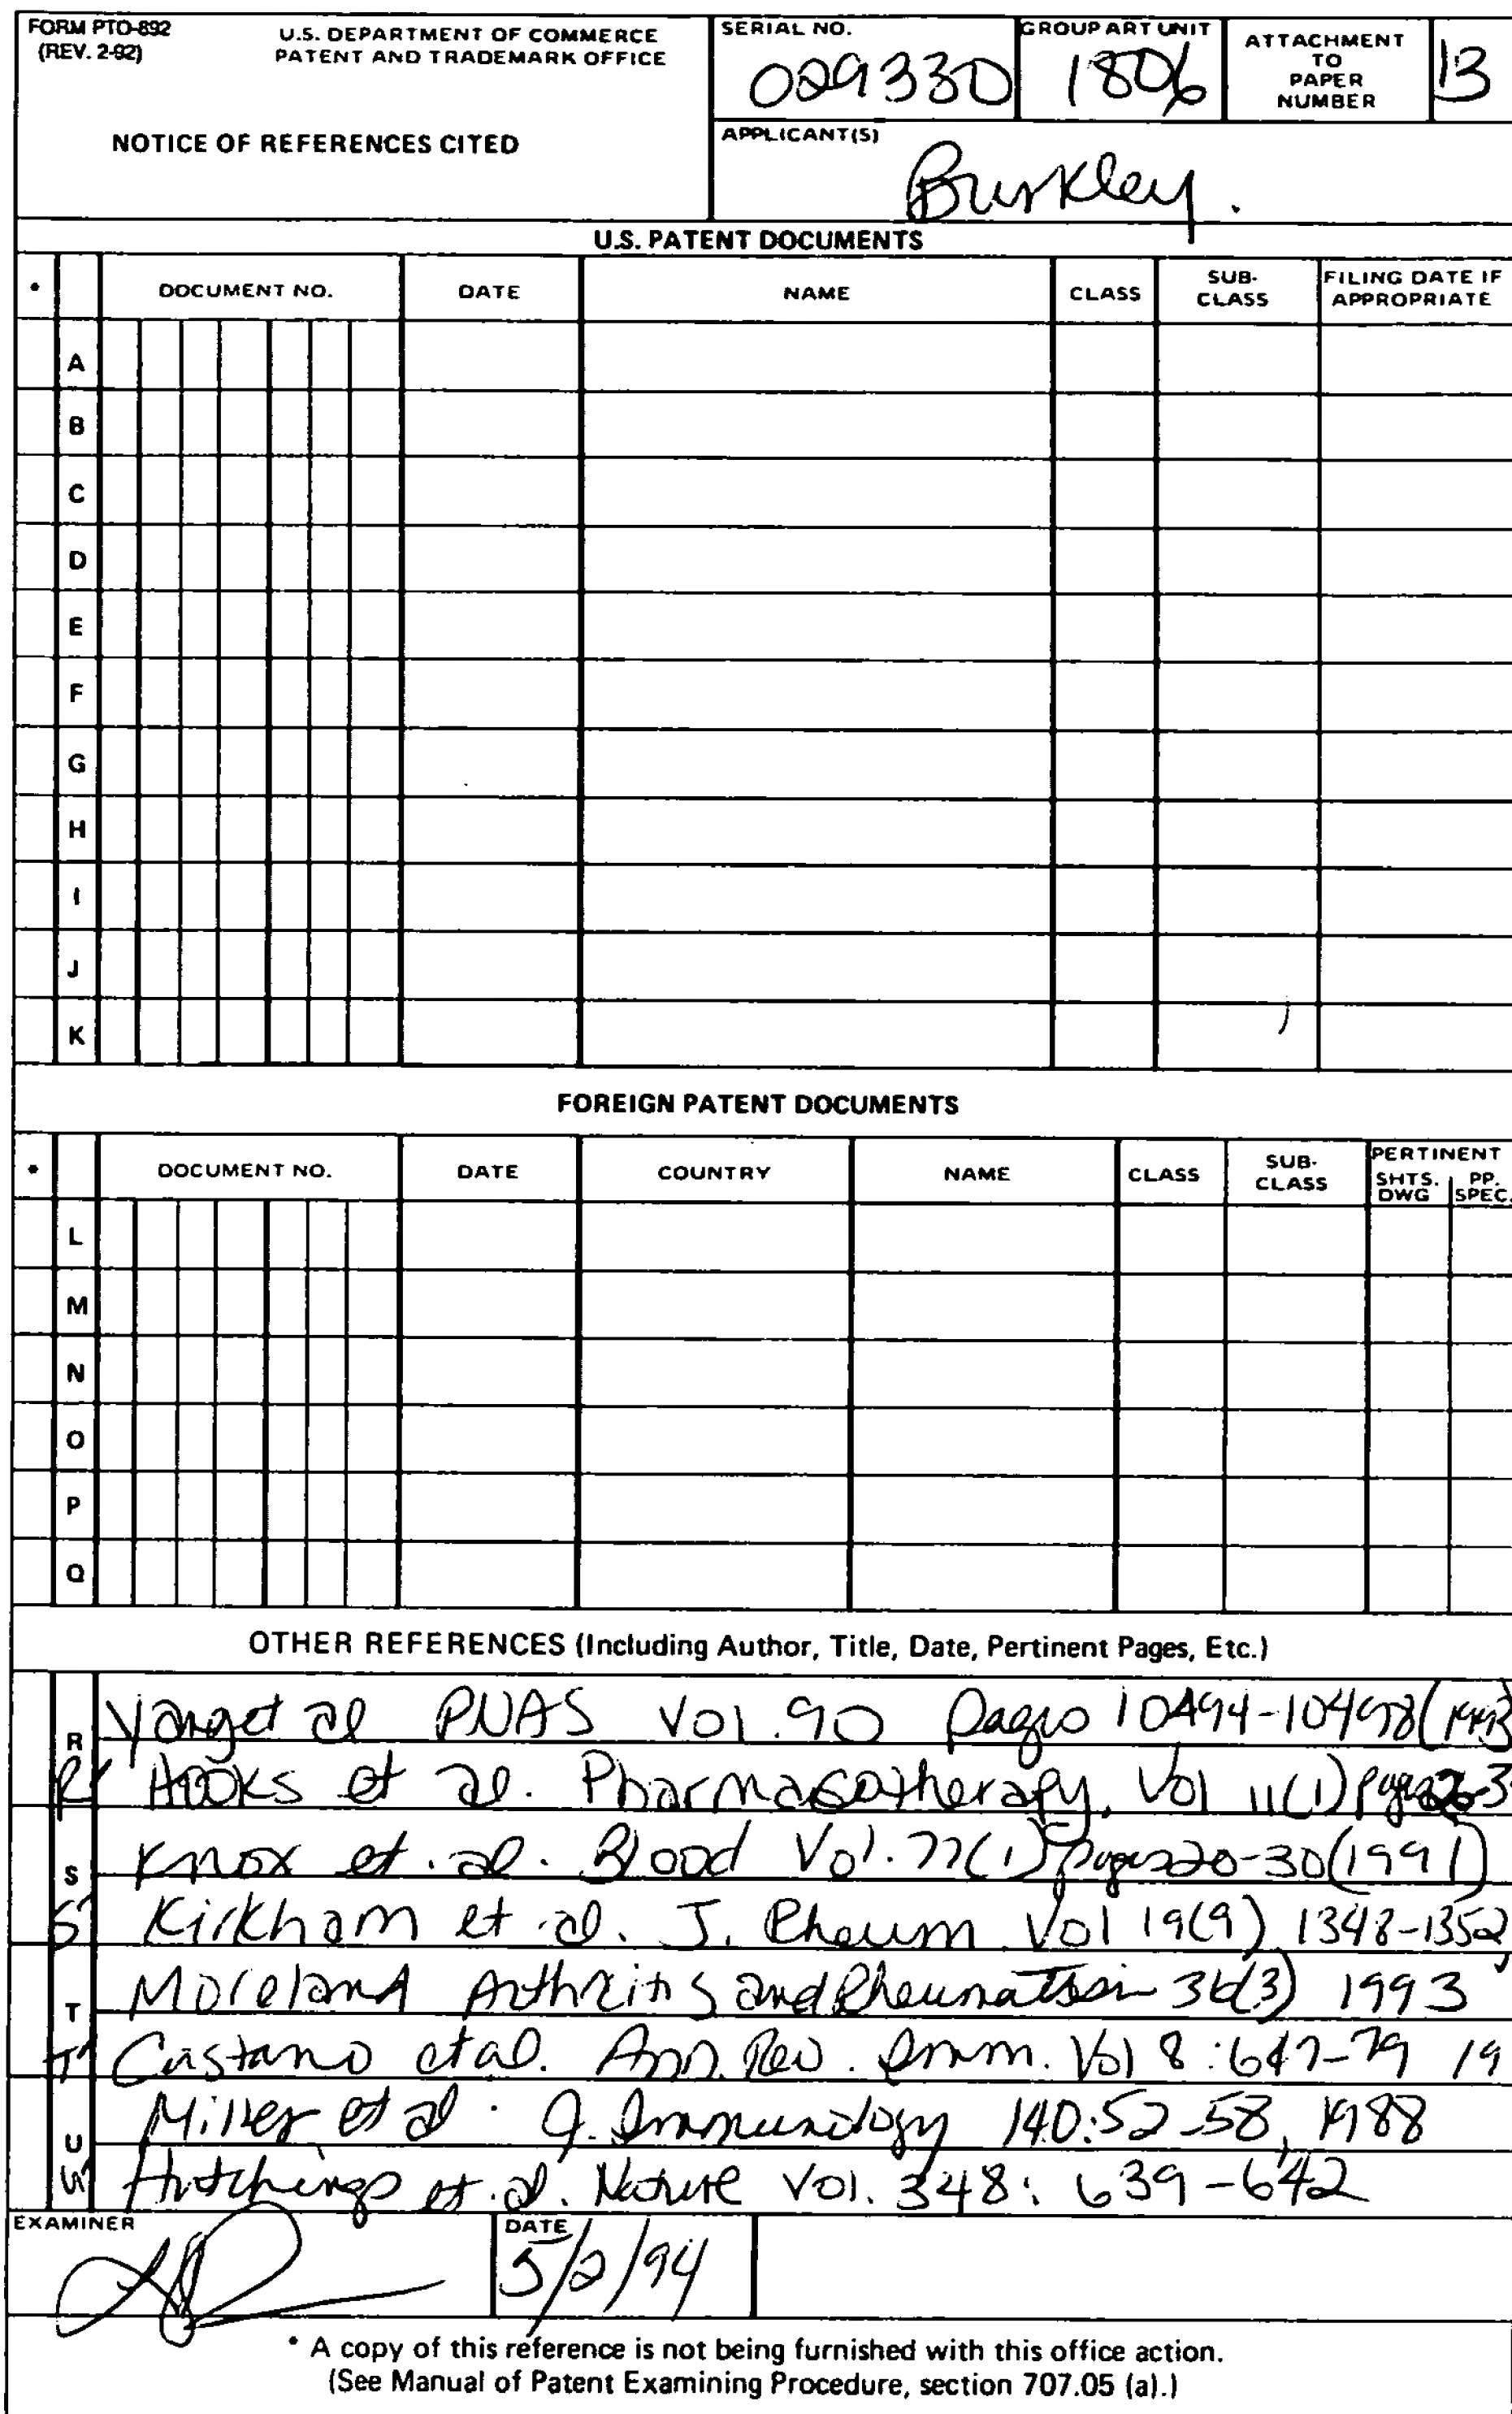 FORM PTO-892
(REV. 2-92)
U.S. DEPARTMENT OF COMMERCE
PATENT AND TRADEMARK OFFICE
NOTICE OF REFERENCES CITED
SERIAL NO.
029330
GROUP ART UNIT
1806
ATTACHMENT
TO
PAPER
NUMBER
13
APPLICANT(S)
Burkley.
U.S. PATENT DOCUMENTS
* DOCUMENT NO. DATE NAME CLASS SUB-CLASS FILING DATE IF APPROPRIATE
A
B
C
D
E
F
G
H
I
J
K
FOREIGN PATENT DOCUMENTS
* DOCUMENT NO. DATE COUNTRY NAME CLASS SUB-CLASS PERTINENT SHTS. DWG PP. SPEC.
L
M
N
O
P
Q
OTHER REFERENCES (Including Author, Title, Date, Pertinent Pages, Etc.)
R Yang et al PNAS Vol. 90 pages 10494-10498 (1993
R' Hooks et al. Pharmacotherapy, Vol 11(1) pages
S Knox et. al. Blood Vol. 77(1) pages 20-30 (1991)
S' Kirkham et al. J. Rheum Vol 19(9) 1348-1352,
T Moreland Arthritis and Rheumatism 36(3) 1993
T' Castano et al. Ann. Rev. Imm. Vol 8: 647-79 19
U Miller et al. J. Immunology 140:52-58, 1988
U' Hutchings et. al. Nature Vol. 348: 639-642
EXAMINER
DATE
5/2/94
* A copy of this reference is not being furnished with this office action.
(See Manual of Patent Examining Procedure, section 707.05 (a).)